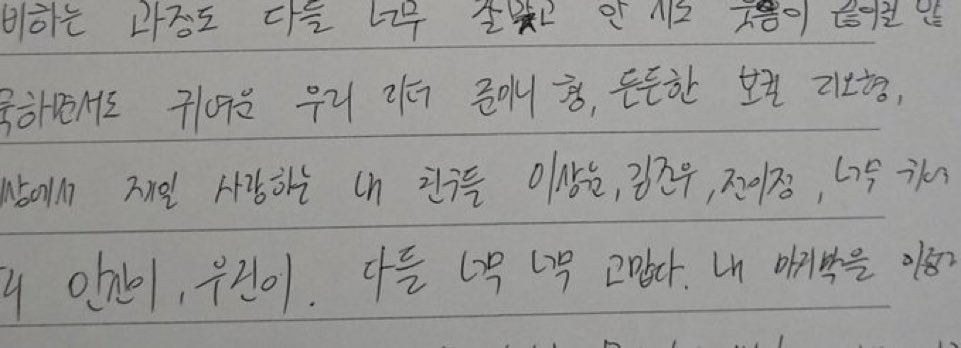 비하는 과정도 다들 너무 잘 맞고 한 시도 웃음이 끊어질
묵하면서도 귀여운 우리 리더 준이니 형, 든든한 보컬 리오형,
상에서 재일 사랑하는 내 친구들 이상윤, 김진우, 전이정, 너무
안진이, 우린이. 다들 너무 너무 고맙다. 내 마지막을 이렇게